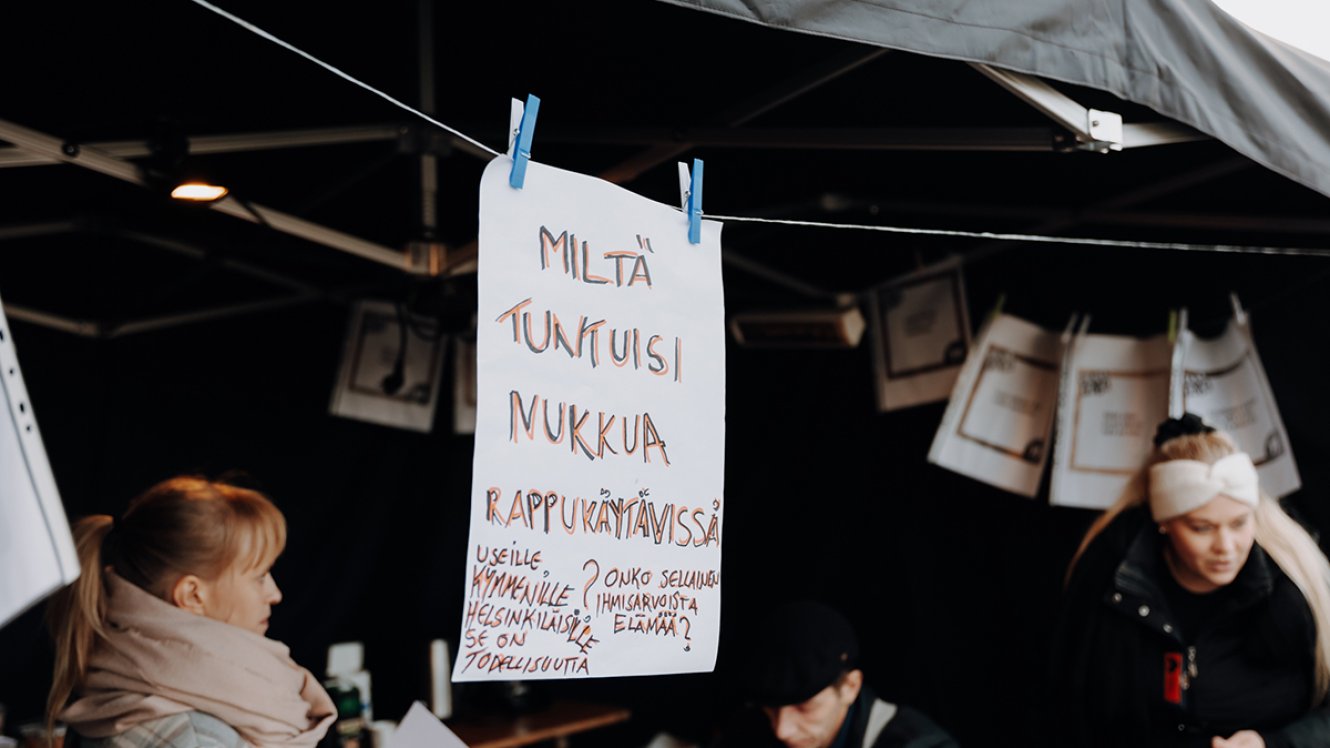 MILTÄ
TUNTUISI
NUKKUA
RAPPUKÄYTÄVISSÄ
?
USEILLE
KYMMENILLE
HELSINKILÄISILLE
SE ON
TODELLISUUTTA
ONKO SELLAINEN
IHMISARVOISTA
ELÄMÄÄ?